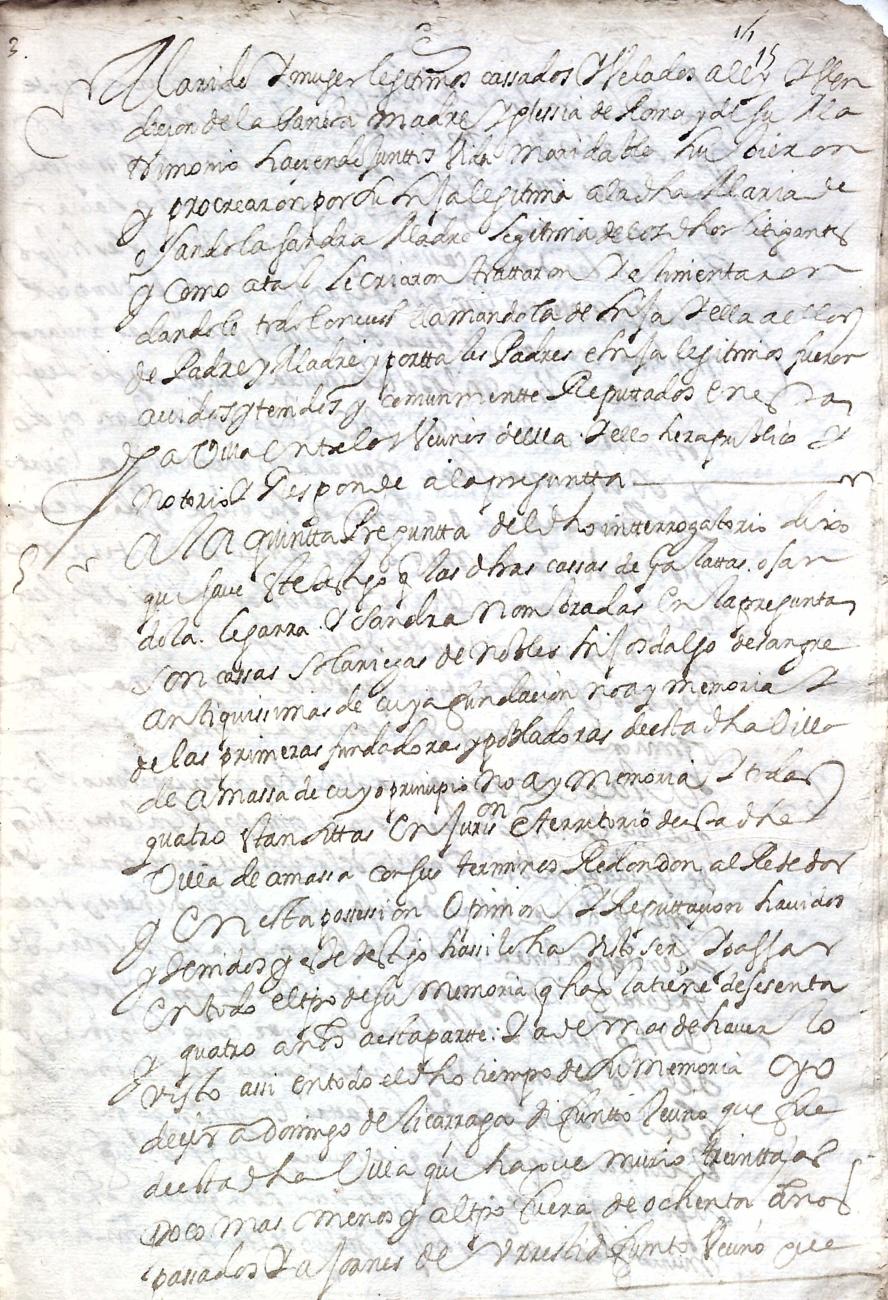 3.
14
15
Marido Y muger legitimos cassados Y Velados a ley Y
dicion de la Santa Madre Yglessia de Roma y de su Ma
trimonio haciendo Junttos Vida Maridable hu bieron
y procrearon por su hija legitima a la dha Maria de
Sandra Madre legitima de los dhos litigantes
y Como a tal le criaron trattaron Y alimentaron
dandole llamandola de hija Y ella a ellos
de Padre y Madre y por tta les Padres e hija legitimos fueron
auidos y tenidos y comunmentte Reputtados en esta
dha Villa entre los Veçinos della Y ello hera publico Y
notorio Y Responde a la preguntta
A la quintta Preguntta del dho intterrogatorio dixo
que save este testigo q las dhas cassas de
de la Y Sandra nombradas En la pregunta
son cassas Solariegas de Nobles hijosdalgo de sangre
antiquissimas de cuya fundacion no ay memoria Y
de las primeras fundadoras y pobladoras de esta dha Villa
de Amassa de cuyo principio No ay Memoria Y todas
quatro stan sittas En Juris on e territorio de esta dha
Villa de amassa con sus terminos Redondon al Rededor
y En esta possession Opinion Y Reputtaçion havidos
y tenidos y este testigo hassi lo ha visto ser Y passar
En todo el tpo de su Memoria q haze la tiene de sesenta
y quatro años a esta partte: Y ademas de haver lo
visto assi en todo el dho tiempo de su Memoria Oyo
deçir a Domingo de licarraga difuntto Veçino que fue
de esta dha Villa que haze murio treintta as
poco mas o menos y al tpo hera de ochenta años
passados Y a Joanes de Vrresti difunto Veçino que